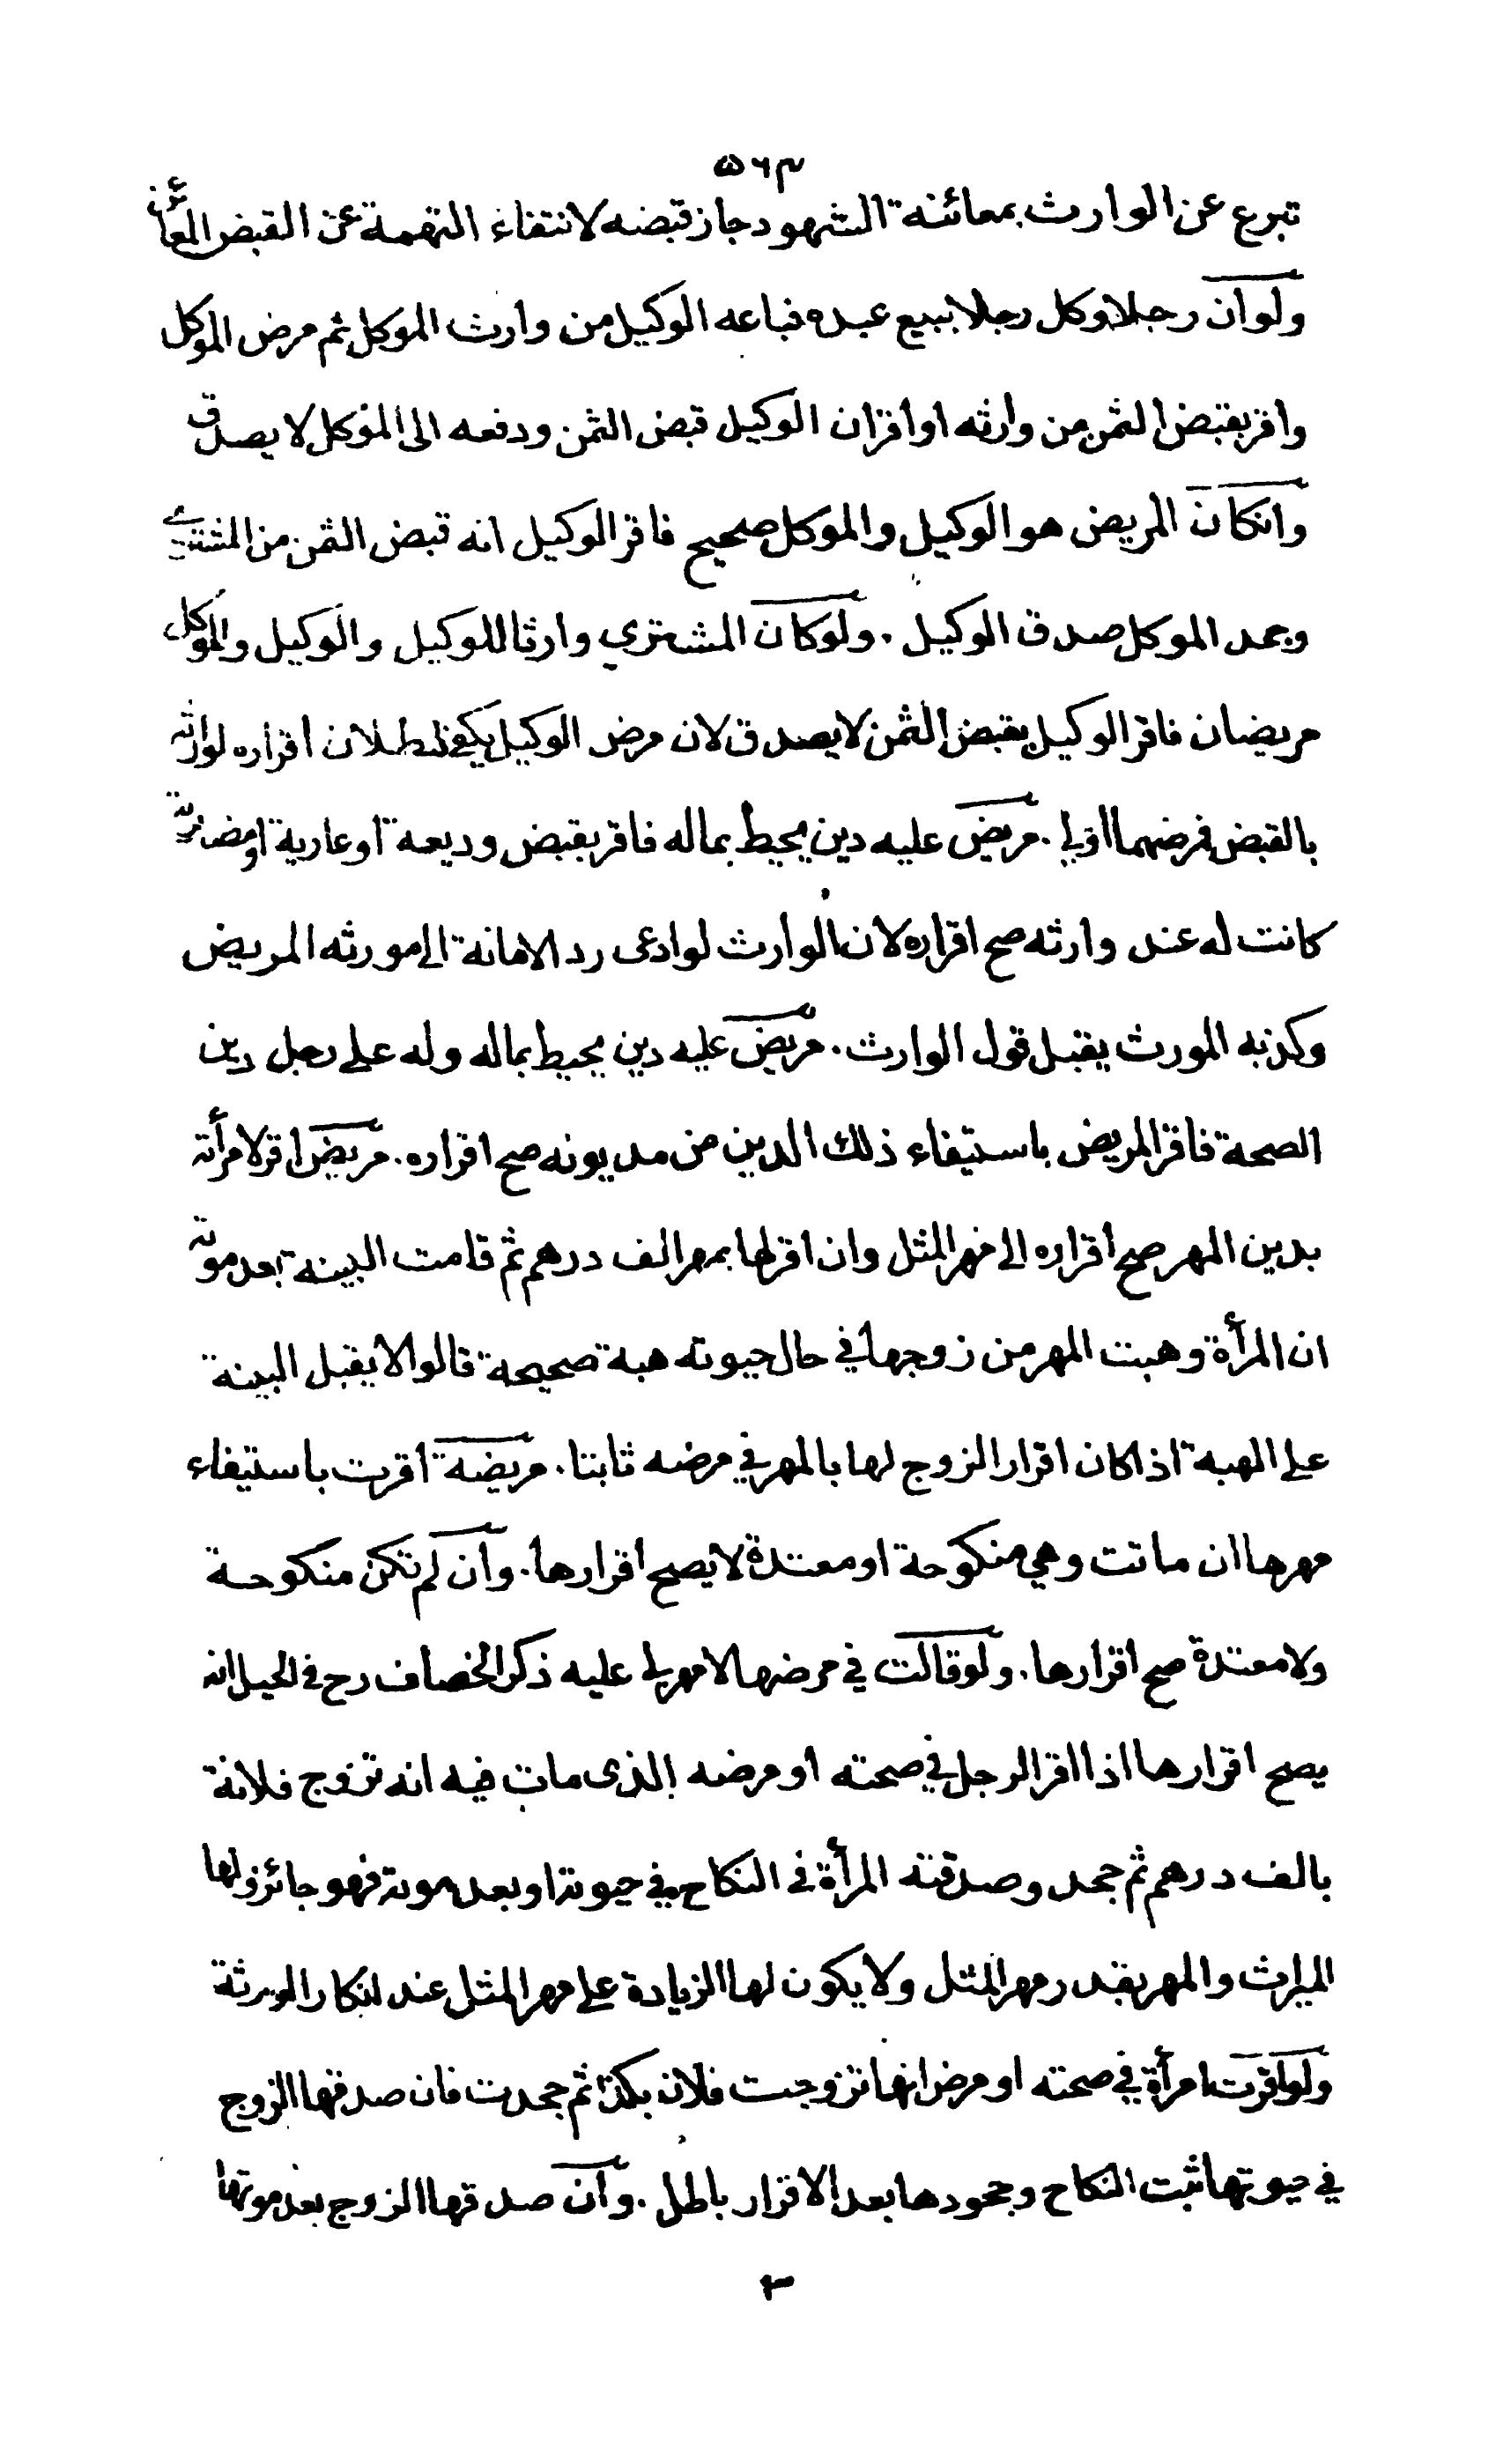 ۵۶۳
تبرع عن الوارث بمعائنة الشهود جاز قبضه لانتفاء التهمة عن القبض المعائن
ولوان رجلا وكل رجلا ببيع عبده فباعه الوكيل من وارث الموكل ثم مرض الموكل
واقر بقبض الثمن من وارثه اواقران الوكيل قبض الثمن ودفعه الى الموكل لا يصدق
وانكان المريض هو الوكيل والموكل صحيح فاقر الوكيل انه قبض الثمن من المشتري
وجحد الموكل صدق الوكيل . ولوكان المشتري وارثا للوكيل والوكيل والموكل
مريضان فاقر الوكيل بقبض الثمن لا يصدق لان مرض الوكيل يكفي لبطلان اقراره لوارثه
بالقبض فمرضهما اولى . مريض عليه دين يحيط بماله فاقر بقبض وديعة اوعارية اومضاربة
كانت له عند وارثه صح اقراره لان الوارث لوادعى رد الامانة الى مورثه المريض
وكذبه المورث يقبل قول الوارث . مريض عليه دين يحيط بماله وله على رجل دين
الصحة فاقر المريض باستيفاء ذلك الدين من مديونه صح اقراره . مريض اقر لامرأته
بدين المهر صح اقراره الى مهر المثل وان اقر لها بمهر الف درهم ثم قامت البينة بعد موته
ان المرأة وهبت المهر من زوجها في حال حيوته هبة صحيحة قالوا لا يقبل البينة
على الهبة اذا كان اقرار الزوج لها بالمهر في مرضه ثابتا . مريضة اقرت باستيفاء
مهرها ان ماتت وهي منكوحة اومعتدة لا يصح اقرارها . وان لم تكن منكوحة
ولا معتدة صح اقرارها . ولوقالت في مرضها لا مهر لي عليه ذكر الخصاف رح في الحيل انه
يصح اقرارها اذا اقر الرجل في صحته او مرضه الذى مات فيه انه تزوج فلانة
بالف درهم ثم جحد وصدقته المرأة في النكاح في حيوته اوبعد موته فهو جائز ولها
الميراث والمهر بقدر مهر المثل ولا يكون لها الزيادة على مهر المثل عند انكار الورثة
ولو اقرت امرأة في صحته او مرض انها تزوجت فلان بكذا ثم جحدت فان صدقها الزوج
في حيوتها ثبت النكاح وجحودها بعد الاقرار باطل . وان صدقها الزوج بعد موتها